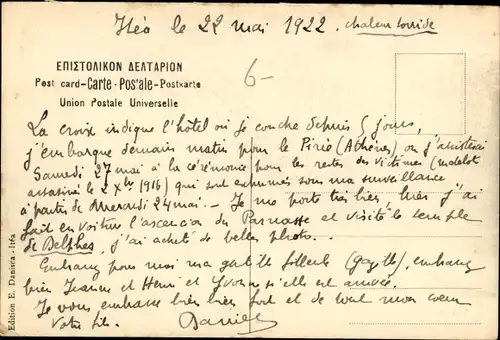 Itéa le 22 mai 1922. chaleur torride
ΕΠΙΣΤΟΛΙΚΟΝ ΔΕΛΤΑΡΙΟΝ
Post card-Carte-Postale-Postkarte
Union Postale Universelle
6-
La croix indique l'hôtel où je couche depuis 5 jours,
j'embarque demain matin pour le Pirée (Athènes) où j'assisterai
Samedi 27 mai à la cérémonie pour les restes des victimes (matelot
assassiné le 2 Xbre 1916) qui sont exhumés sous ma surveillance
à partir de mercredi 24 mai - Je me porte très bien, hier j'ai
fait en voiture l'ascension du Parnasse et visité le temple
de Delphes, j'ai acheté de belles photos...
Embrasse pour moi ma gentille filleule (Gazelle), embrasse
bien Jeanne et Henri et Yvonne si elle est arrivée.
Je vous embrasse bien bien fort et de tout mon coeur
Votre fils. Daniel
Edition E. Daniséa - Itéa